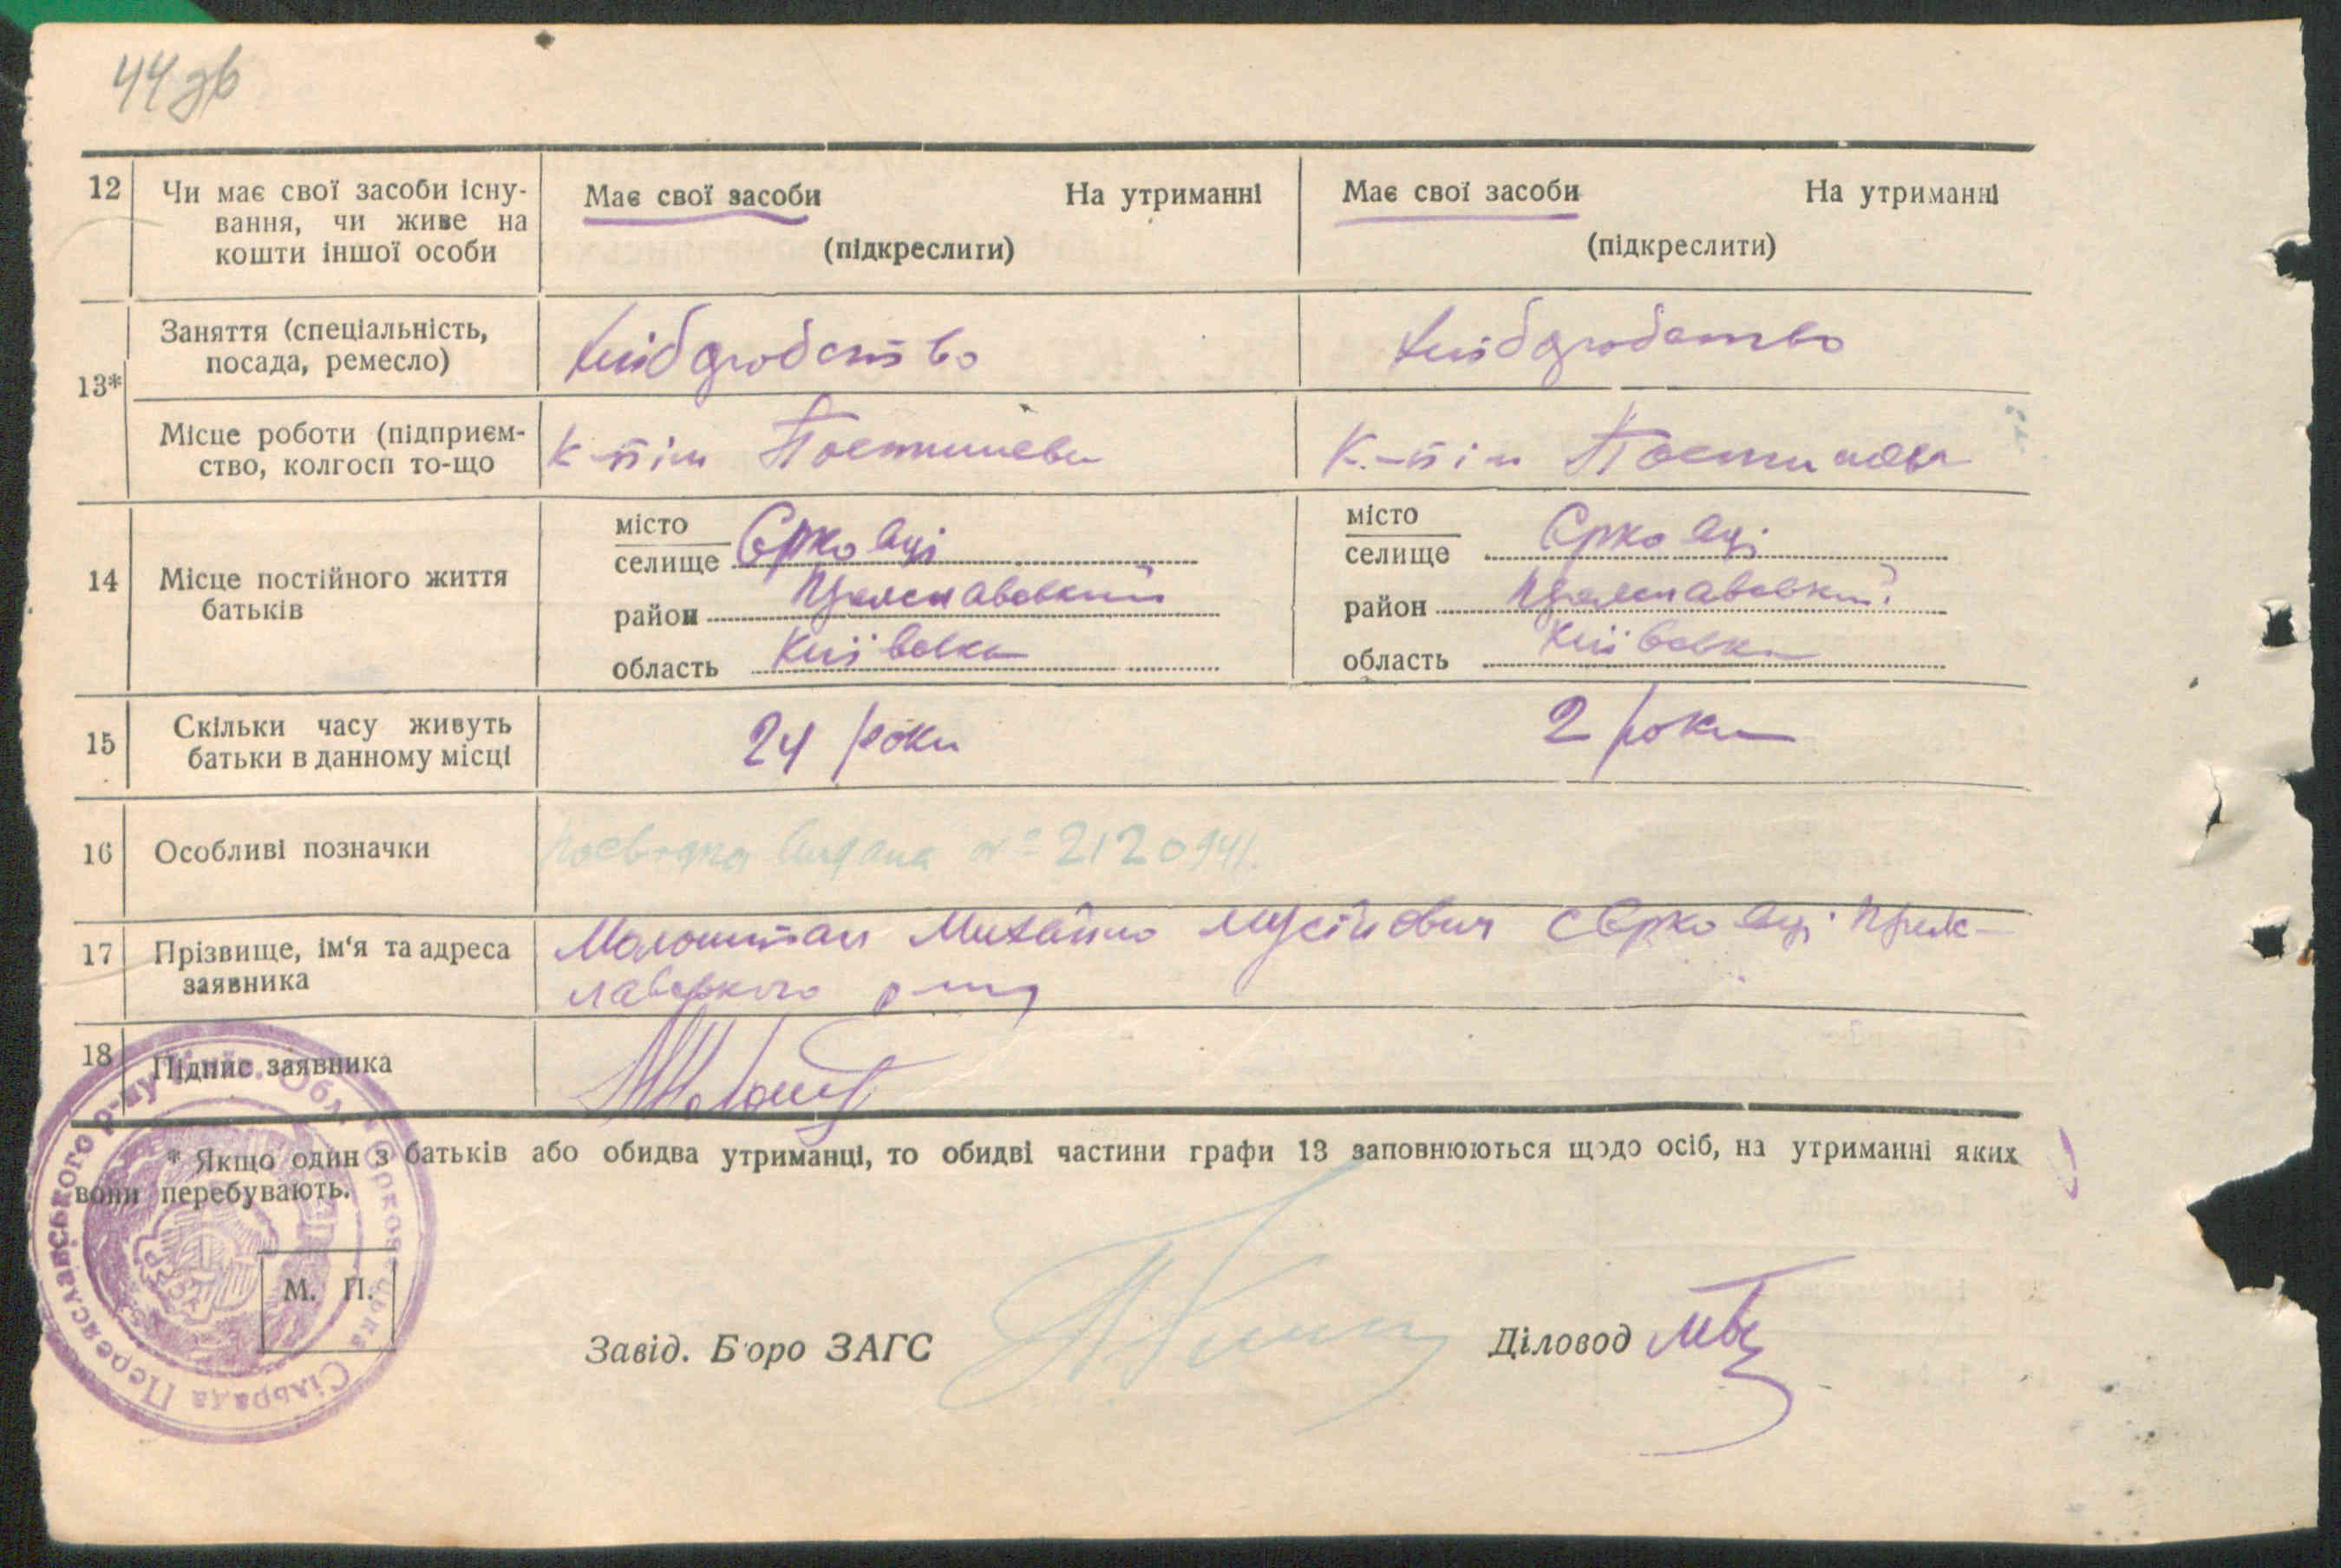 44 зв
12 Чи має свої засоби існу-
вання, чи живе на
кошти іншої особи
Має свої засоби На утриманні
(підкреслити)
Має свої засоби На утриманні
(підкреслити)
13*
Заняття (спеціальність,
посада, ремесло)
хліборобство
хліборобство
Місце роботи (підприєм-
ство, колгосп то-що
К-п ім Постишева
К-п ім Постишева
14 Місце постійного життя
батьків
місто
селище Єрковці
район Переяславський
область Київська
місто
селище Єрковці
район Переяславський
область Київська
15 Скільки часу живуть
батьки в данному місці
24 роки
2 роки
16 Особливі позначки
посвідка видана № 2120941.
17 Прізвище, ім'я та адреса
заявника
Михайло Мусійович с Єрковці Переяс-
лавського р-ну
18 Підпис заявника
* Якщо один з батьків або обидва утриманці, то обидві частини графи 13 заповнюються щодо осіб, на утриманні яких
вони перебувають.
М. П.
Завід. Бюро ЗАГС
Діловод
Єрковецька Сільрада Переяславського р-ну Київс. Обл.